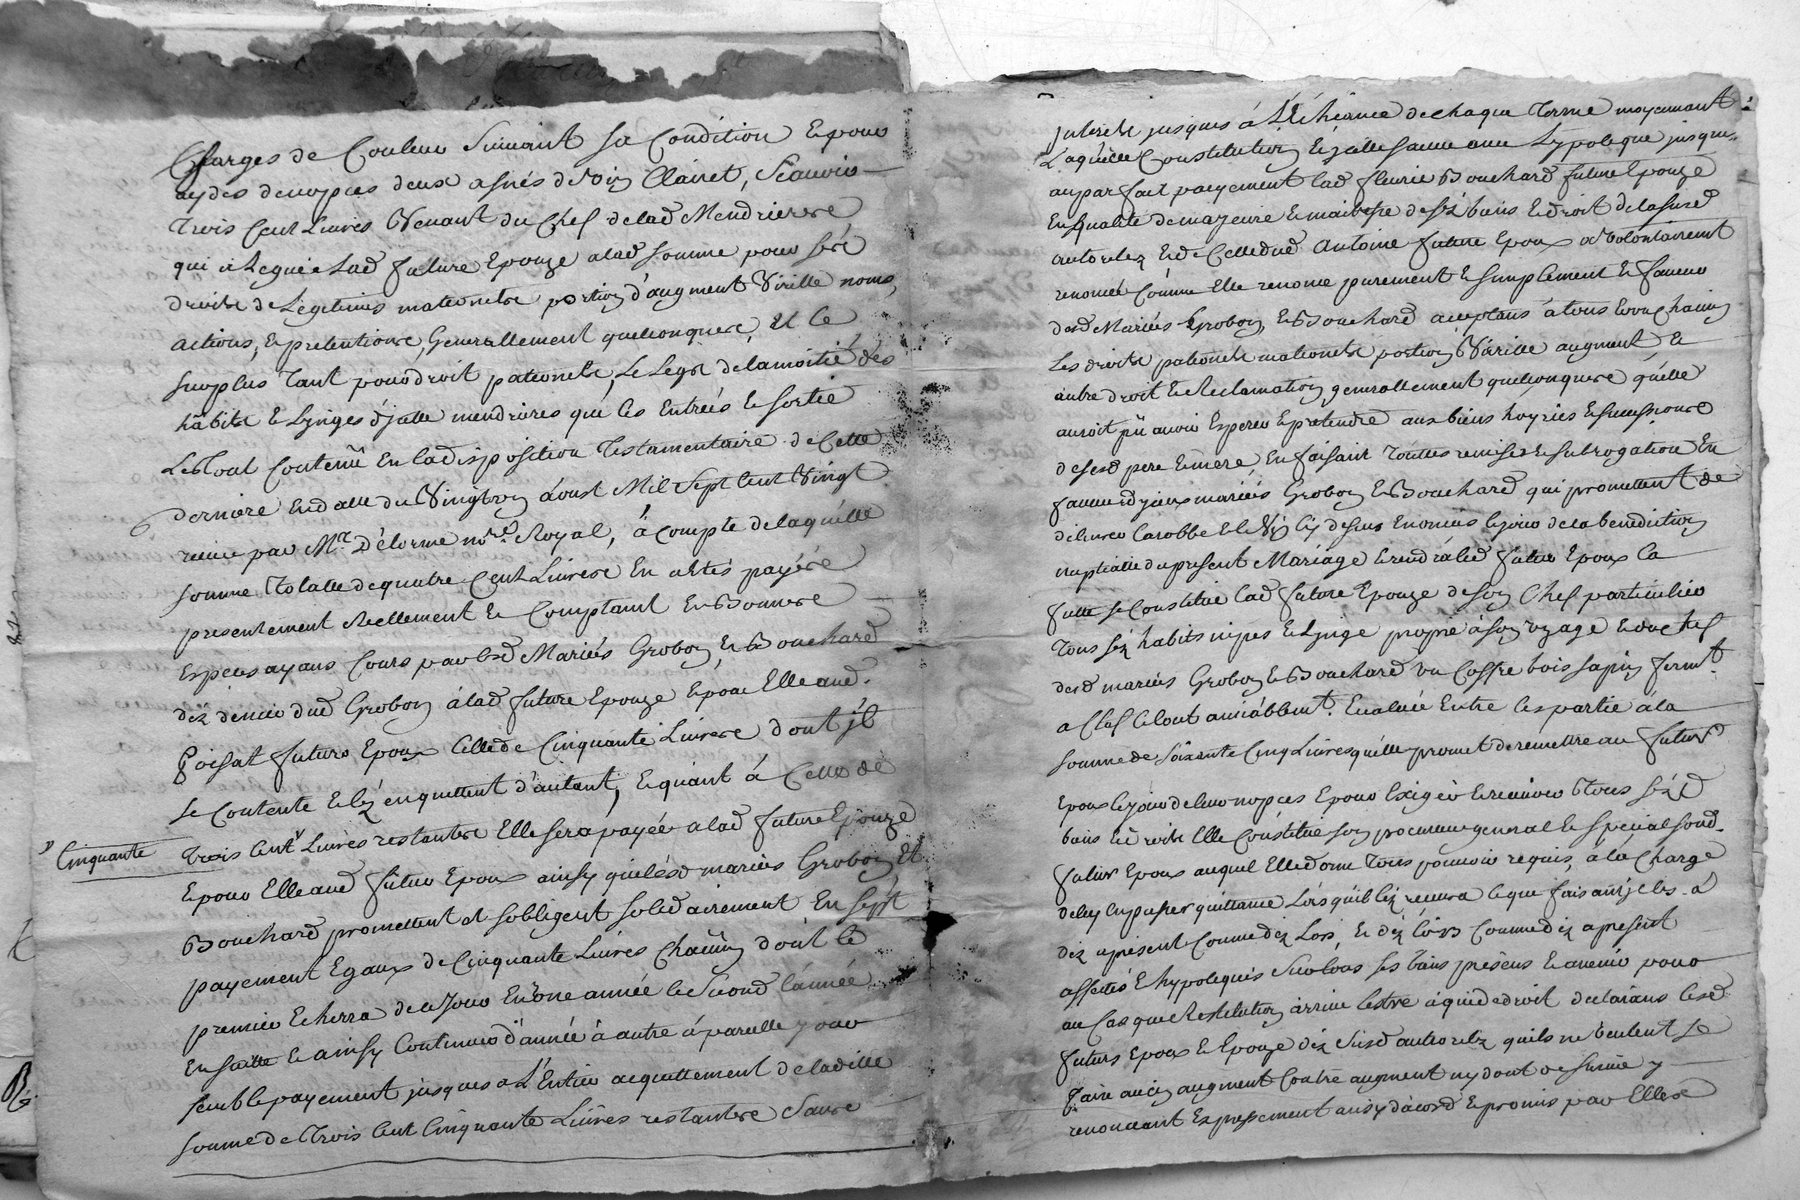 Charges de Couleur Suivant sa Condition Epour
aydes denopces deux asnés de Clairet, Scavoir
Trois Cent Livres Venant du Chef delad Mendrierere
qui a Leguée lad future Epouze alad somme pour sére
droits de Legitimes maternelse portion d'augment Virille noms,
actions, Epretentions, Generallement quelconquese, Et le
surplus Tant pour droit paternelse, Le Legst delamoitié des
habitse & Lynges d'jcelle mendrieres qué les Entreés & sortie
Letout Contenû En ladisposition Testamentaire de Cette
derniere Endatte du Vingtroy Aoust Mil Sept Cent Vingt
reçue par Mr. Délorme nore. Royal, á Compte delaquélle
somme Totalle dequatre Cent Livrese En aétés payéré
presentement Reellement & Comptant EnBonnese
Especes ayans Cours par lesd Mariés Grobon & Bouchard
déz denier dud Grobon álad future Epouze Epour Elle aud.
Goisat futuro Epoux Celle de Cinquante Livrese dont jl
se Contente & léz enquittent d'autant, Equant á Celle de
Trois Cent Livres restantese Elle sera payée alad future Epouze
Cinquante
Epour Elle aud futur Epoux ainsy que lésd mariés Grobon Et
Bouchard promettent et sobligent solidairement En sept
payement Egaux de Cinquante Livres Chaûn dont le
premier Echerra dece Jour En une année le Second lánnée
En suitte & ainsy Continuer d'année á autre á pareille jour
semble payement jusques a L'Entier acquittement deladitte
somme de Trois Cent Cinquante Livres restantese Sanse
Jnterêtse jusques á L'Echéance de chaque Terme moyennant
Laquélle Constitution & jcelle sauve une Lypoteque jusqu
auparfait payement lad fleurie Bouchard future Epouze
En qualité demajeure & maitresse deséz biens & droit delasusd
autorité & de Celle dud Antoine futur Epoux a Volontairemt
renoncé Comme Elle renonce purement & simplement & faveur
desd Mariés Grobon, & Bouchard acceptans á tous
Les droitse paternelse maternelse portion Virille augment, &
autre droit & Reclamation generallement quelconquese quélle
auroit pû avoir Esperer Epretendre aux biens hoyries & successionse
de sesd pere & mere, En faisant Touttes remises & subrogation En
faveur dyceux mariés Grobon & Bouchard qui promettent de
délivrer larobbe & le cy dessus Enoncés le jour de la benediction
nuptialle du present Mariage & rendre aud futur Epoux la
future se Constitue lad future Epouze deson Chef particulier
Tous séz habits nipes & Lynge propre áson uzage & du chef
desd mariés Grobon & Bouchard un Coffre bois sapin fermt.
a Clef letout amiáblemt. Evaluée Entre les partie ála
somme de Soixante Cinq Livres quélle promet de remettre au futur
Epoux lejour deleur nopces Epour Exigér & recevoir Tous séz d
biens & droitse Elle Constitue son procureur general & special sond.
futur Epoux auquel Elle donne Tous pouvoir requis, á la Charge
deluy Enpasser quittance Lors quil léz recevra ceque faisant jl les á
déz apresent Comme déz Lors, & déz Lors Comme déz apresent
affectés Ehypotequés Sur tous ses biens présens & avenir pour
au Cas que Restitution arrive lestre á qui dedroit declarans lesd
futurs Epoux & Epouze déz Susd autoritéz quils ne Veulent se
faire aucun augment Contre augment ny dont de Survie y
renonceant Expressement ainsy dácord & promis par Ellese